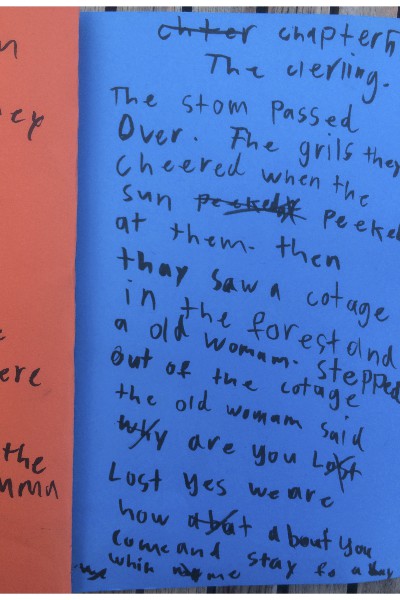 ey
ere
the
chapter 5
The clerling.
The stom passed
Over. The grils they
cheered when the
sun peeked
at them. then
thay saw a cotage
in the forest and
a old womam. stepped
out of the cotage
the old womam said
why are you Lost
Lost yes we are
how about about you
come and stay fo a day
whih me